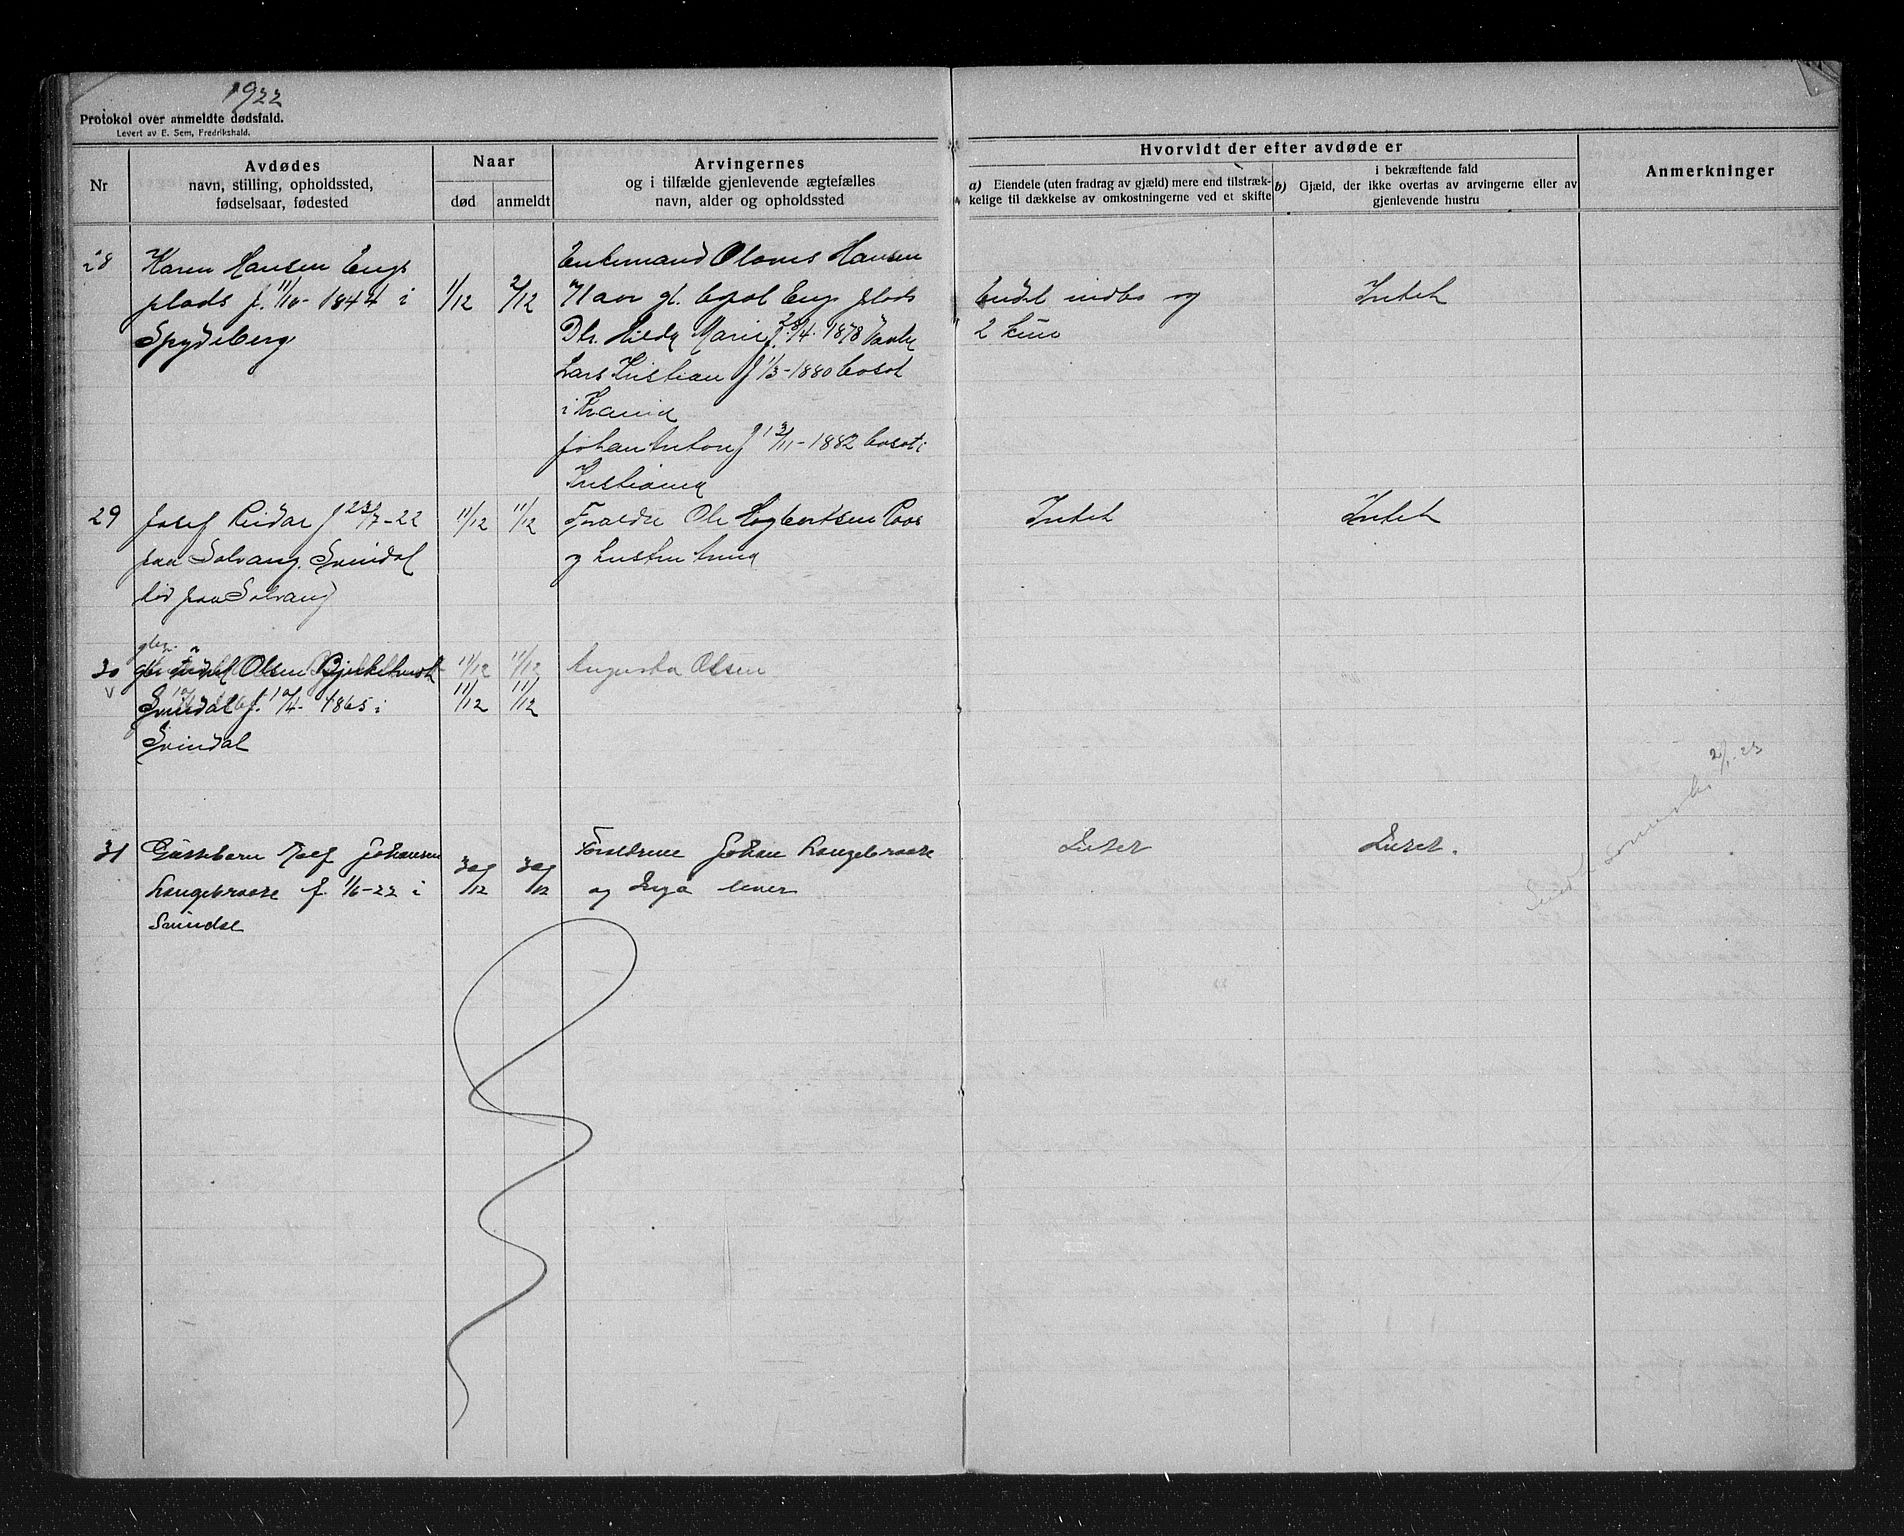 1922
Protokol over anmeldte dødsfald.
Levert av E. Sem, Fredrikshald.
Nr
Avdødes
navn, stilling, opholdssted,
fødselsaar, fødested
Naar
død
anmeldt
Arvingernes
og i tilfælde gjenlevende ægtefælles
navn, alder og opholdssted
Hvorvidt der efter avdøde er
a) Eiendele (uten fradrag av gjæld) mere end tilstræk-
kelige til dækkelse av omkostningerne ved et skifte
i bekræftende fald
b) Gjæld, der ikke overtas av arvingerne eller av
gjenlevende hustru
Anmerkninger
28
Karen Hansen Engs
plads f. 11/10-1844 i
Spydeberg
1/12
2/12
Enkemand Olaves Hansen
71 aar gl. bopl Engs plads
Dtr. Hilda Marie f. /4. 1878
Lars Kristian f 1/3-1880 bosat
i Krania
Johan Anton f 13/11-1882 bosat i
Kristiania
Endel indbo og
2 kuer
Intet
29
Josef Reidar f 23/7-22
paa Solvang. Svindal
død paa Solvang
11/12
11/12
Foraldre Ole Hogbertsen
og hustru Anna
Intet
Intet
30
Olsen Bjerketvedt
Svindal f. 1865 i
Svindal
11/12
11/12
11/12
11/12
Augusta Olsen
31
Gussebarn Rolf Johansen
Langebraate f. 1/6-22 i
Svindal
30/12
30/12
Forældrene Johan Langebraate
og Inga lever
Intet
Intet.
2/1-23